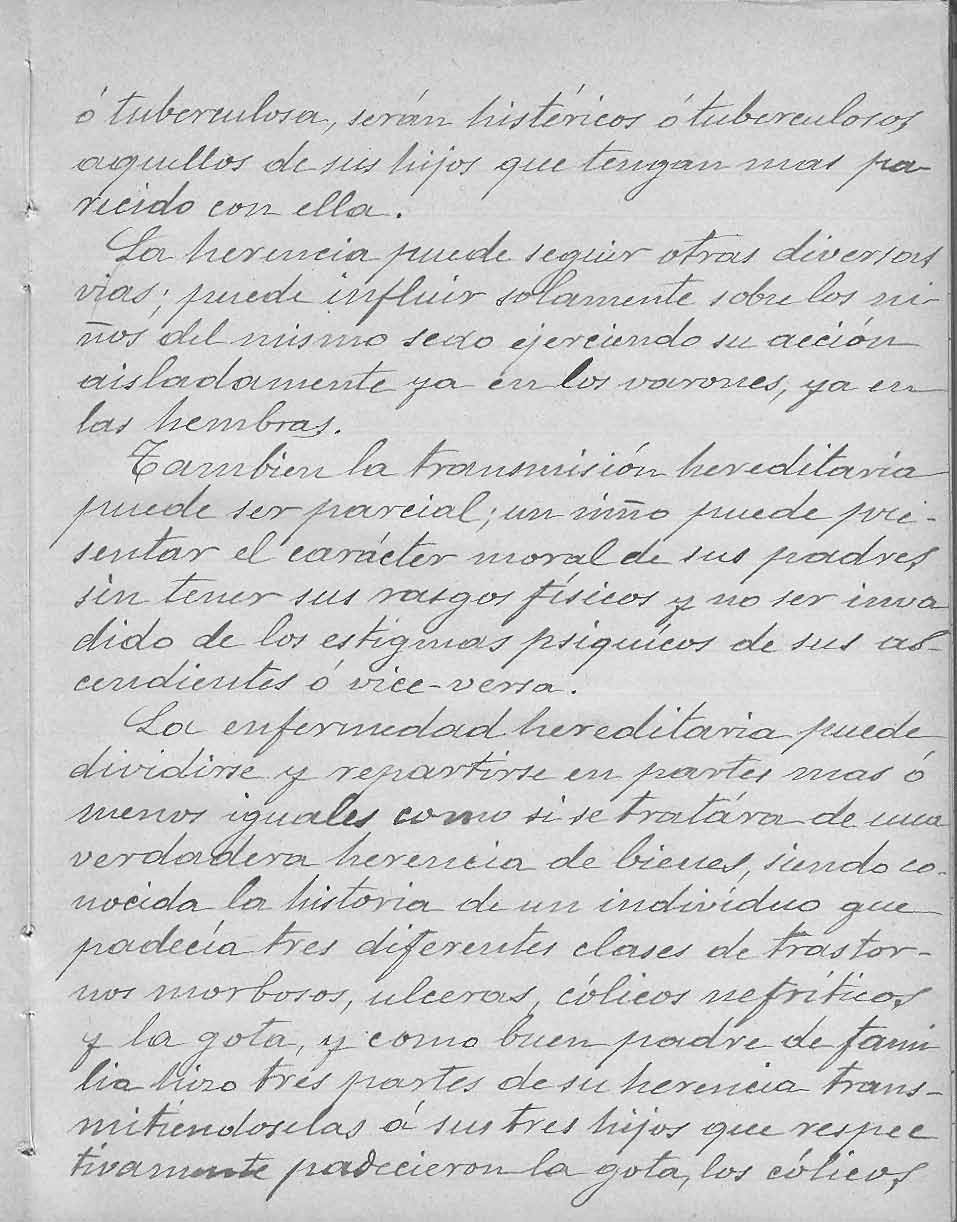 ó tuberculosa, serán histéricos ó tuberculosos
aquellos de sus hijos que tengan mas pa-
recido con ella.
La herencia puede seguir otras diversas
vias; puede influir solamente sobre los ni-
ños del mismo sexo ejerciendo su acción
aisladamente ya en los varones, ya en
las hembras.
Tambien la transmisión hereditaria
puede ser parcial; un niño puede pre-
sentar el carácter moral de sus padres
sin tener sus rasgos físicos y no ser inva
dido de los estigmas psiquicos de sus as-
cendientes ó vice-versa.
La enfermedad hereditaria puede
dividirse y repartirse en partes mas ó
menos iguales como si se tratára de una
verdadera herencia de bienes, siendo co-
nocida la historia de un individuo que
padecía tres diferentes clases de trastor-
nos morbosos, ulceras, cólicos nefríticos
y la gota, y como buen padre de fami
lia hizo tres partes de su herencia trans-
mitiendoselas á sus tres hijos que respec
tivamente padecieron la gota, los cólicos